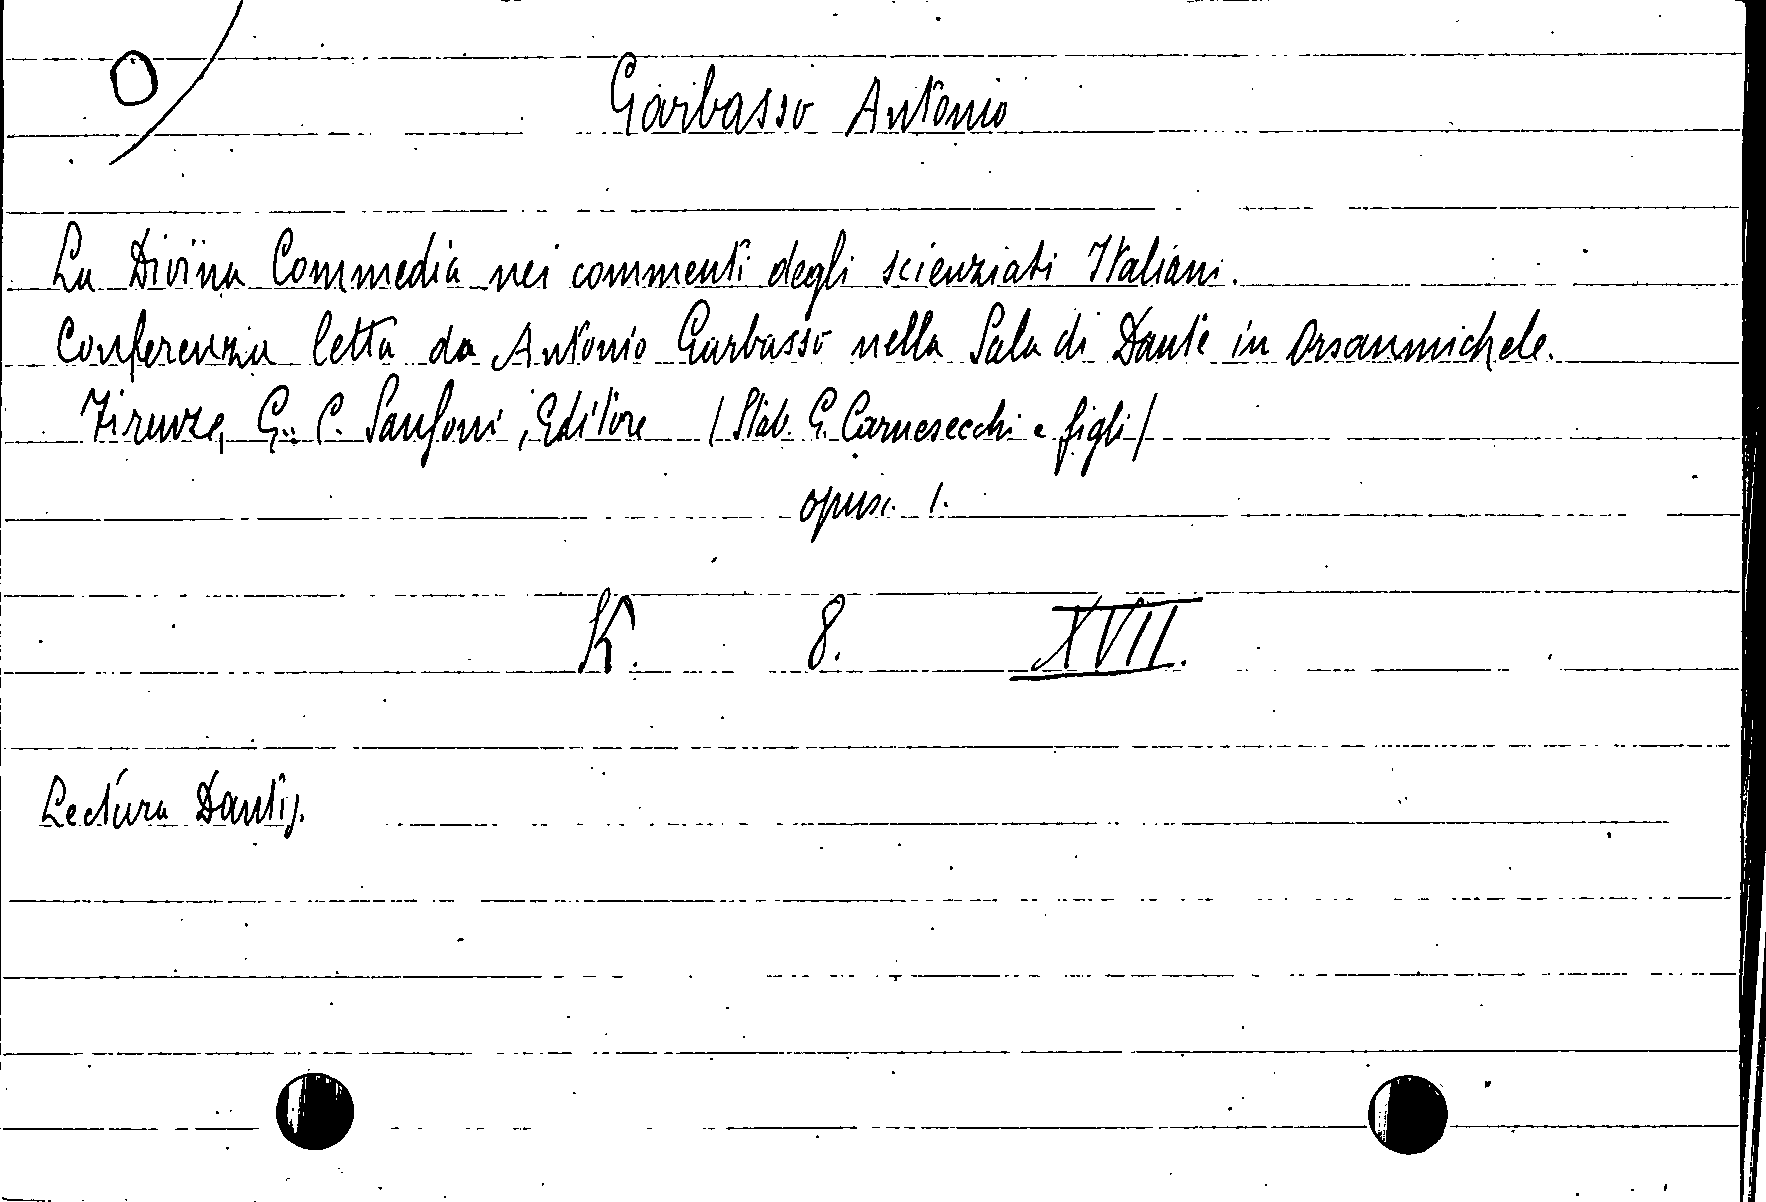 O
Garbasso Antonio
La Divina Commedia nei commenti degli scienziati Italiani.
Conferenza letta da Antonio Garbasso nella Sala di Dante in Orsanmichele.
Firenze, G. C. Sansoni, Editore (Stab. G. Carnesecchi e figli)
opusc. 1.
K. 8. XVII.
Lectura Dantis.